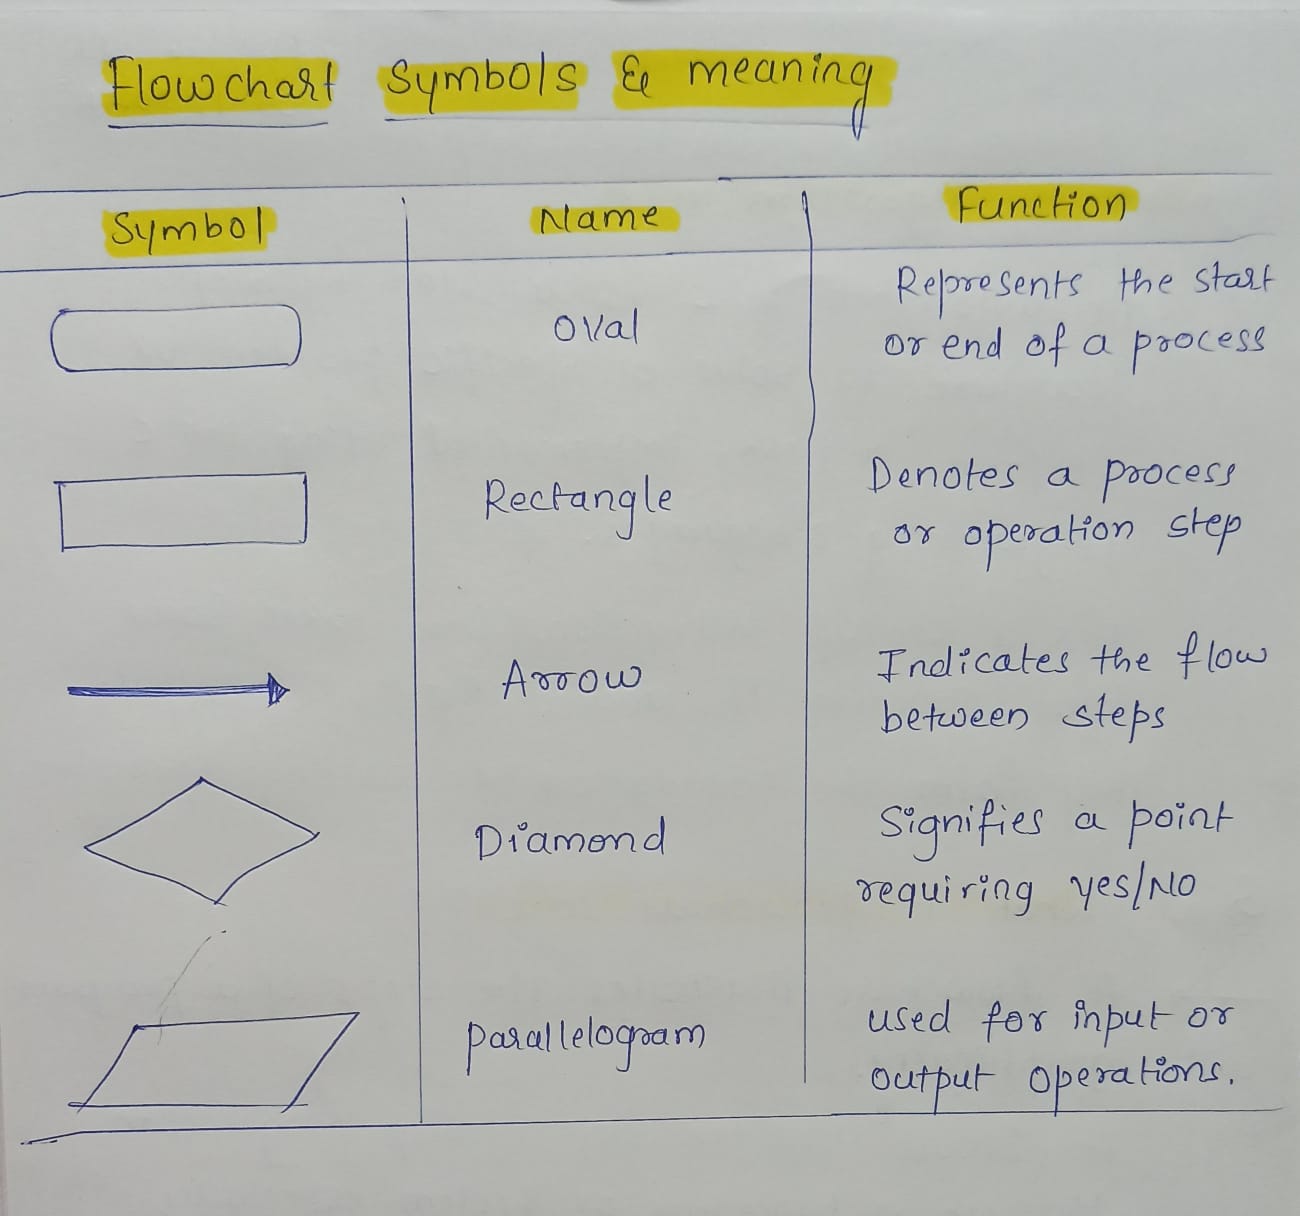 Flowchart Symbols & meaning
Symbol Name Function
Oval
Represents the start
or end of a process
Rectangle
Denotes a process
or operation step
Arrow
Indicates the flow
between steps
Diamond
Signifies a point
requiring yes/No
parallelogram
used for input or
output operations.